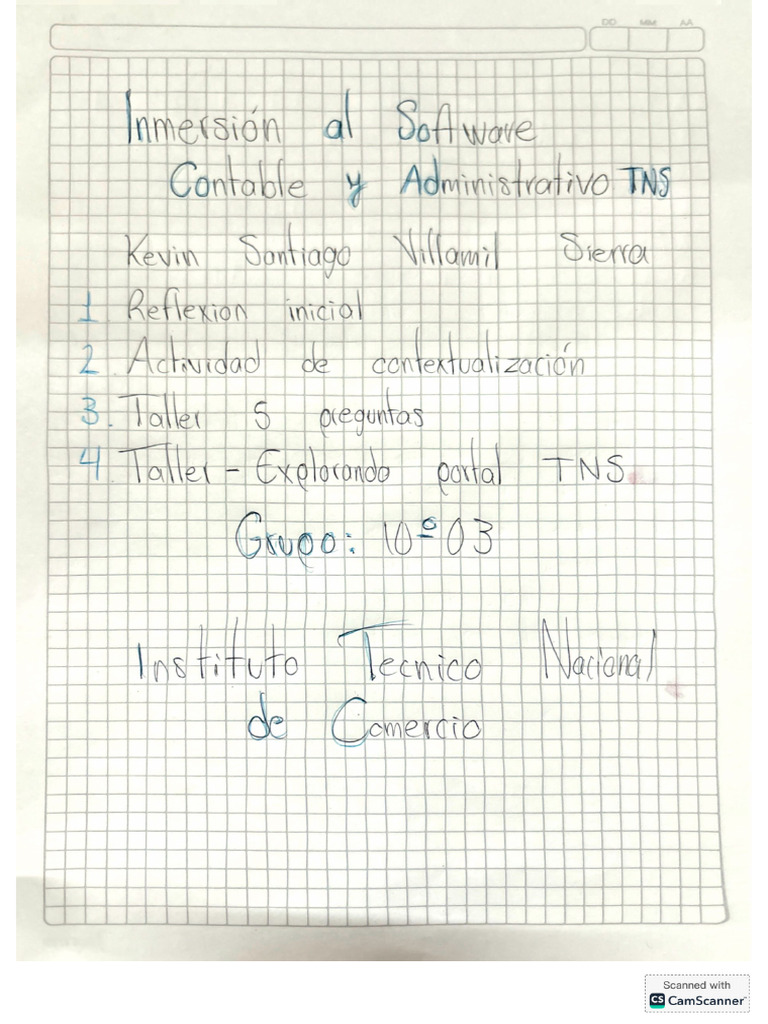 DD MM AA
Inmersión al Software
Contable y Administrativo TNS
Kevin Santiago Villamil Sierra
1. Reflexion inicial
2. Actividad de contextualización
3. Taller 5 preguntas
4. Taller - Explorando portal TNS
Grupo: 10º03
Instituto Tecnico Nacional
de Comercio
Scanned with
CS CamScanner